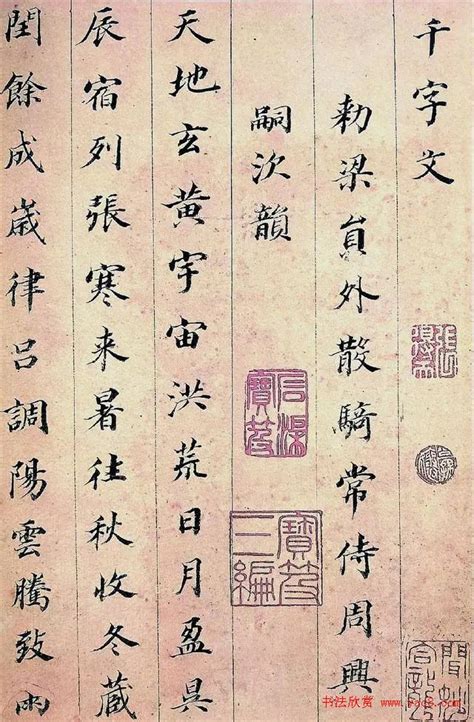 千字文
勅梁員外散騎常侍周興
嗣次韻
天地玄黄宇宙洪荒日月盈昃
辰宿列張寒来暑往秋收冬蔵
閏餘成歳律吕調陽雲騰致雨
石渠寶笈
寶笈三編
书法欣赏 www.yac8.com